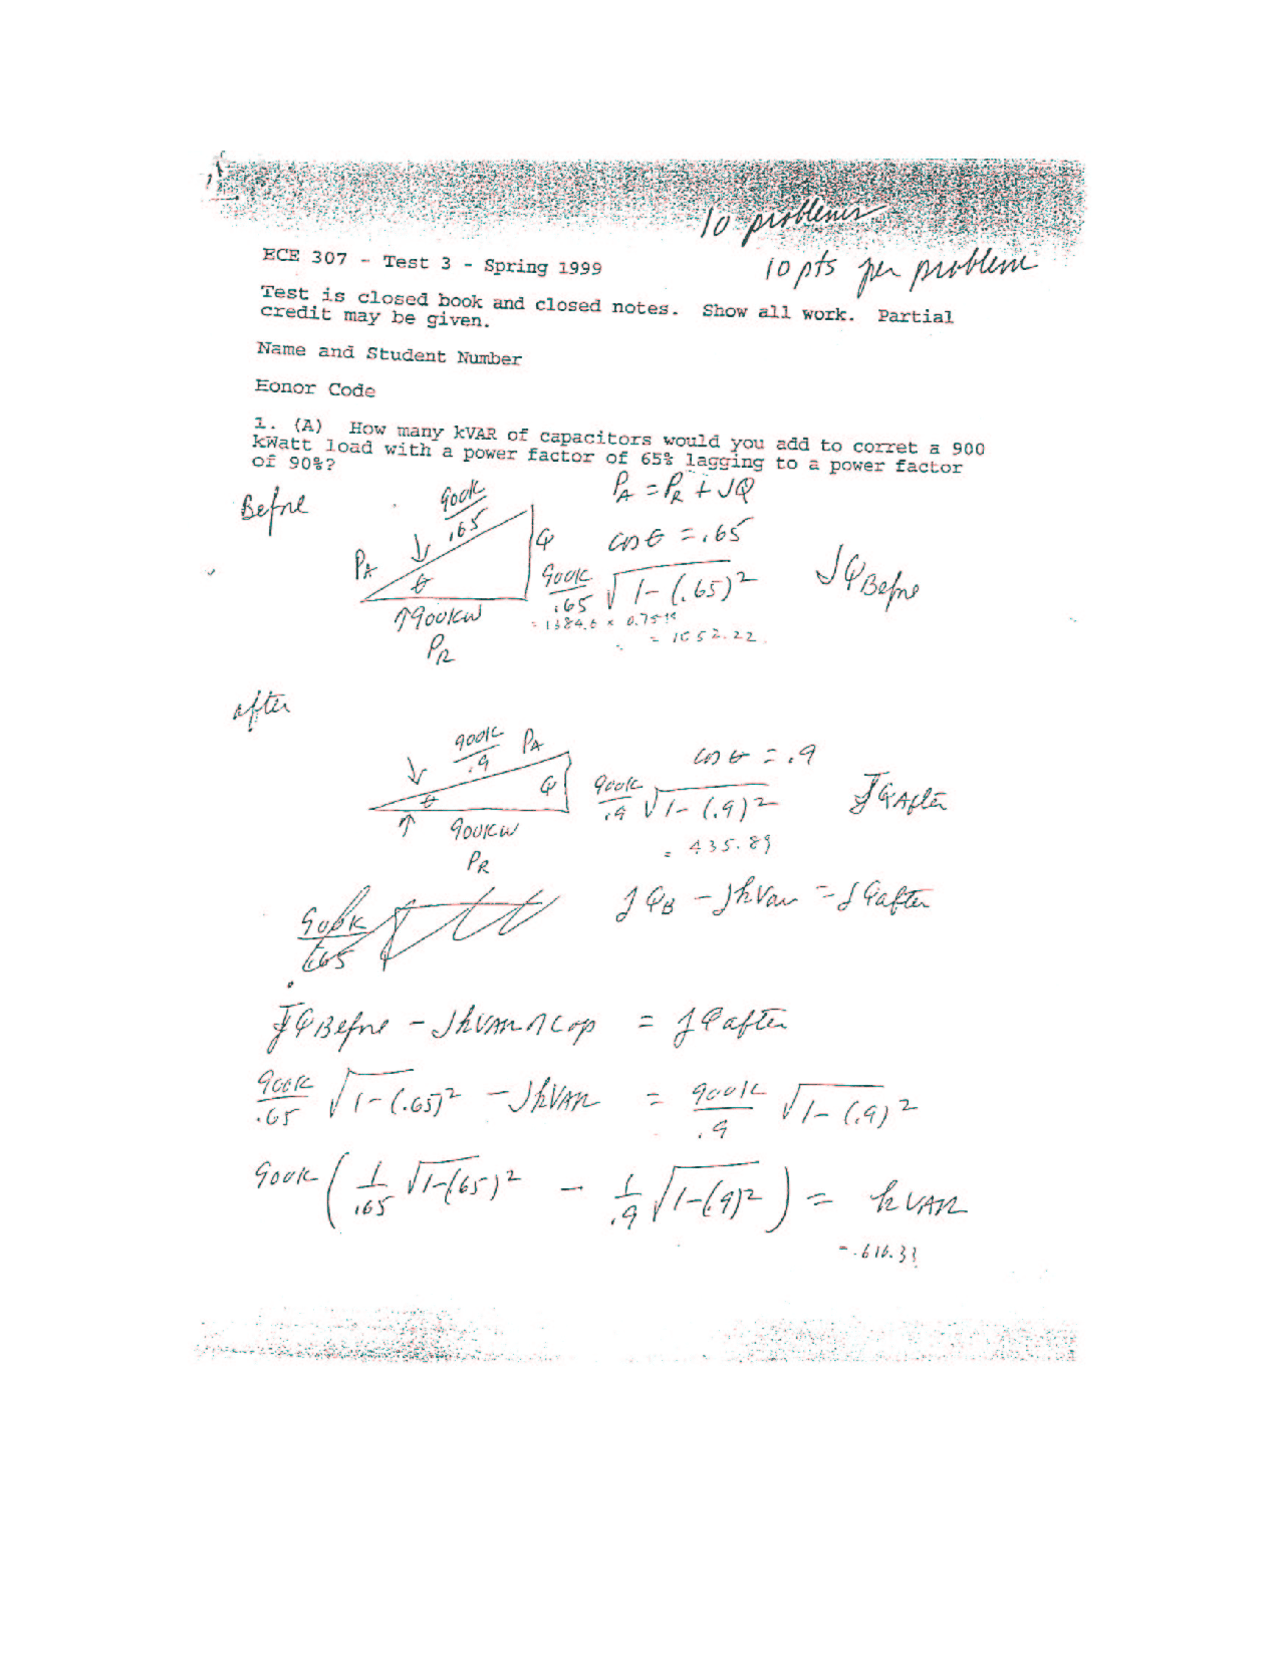 10 problems
10 pts per problem
ECE 307 - Test 3 - Spring 1999
Test is closed book and closed notes. Show all work. Partial
credit may be given.
Name and Student Number
Honor Code
1. (A) How many kVAR of capacitors would you add to corret a 900
kWatt load with a power factor of 65% lagging to a power factor
of 90%?
Before
900K/.65
P_A = P_R + JQ
P_A
θ
Q
cos θ = .65
900K/.65 √(1-(.65)²
JQ Before
↑900KW
= 1384.6 × 0.7599
= 1052.22
P_R
after
900K/.9 P_A
cos θ = .9
θ
Q
900K/.9 √(1-(.9)²
JQ After
↑ 900KW
= 435.89
P_R
JQ_B - JkVar = JQ after
900K/.65
JQ Before - JkVAR = JQ after
900K/.65 √(1-(.65)² - JkVAR = 900K/.9 √(1-(.9)²
900K (1/.65 √(1-(65)² - 1/.9 √(1-(.9)²) = kVAR
= 616.33